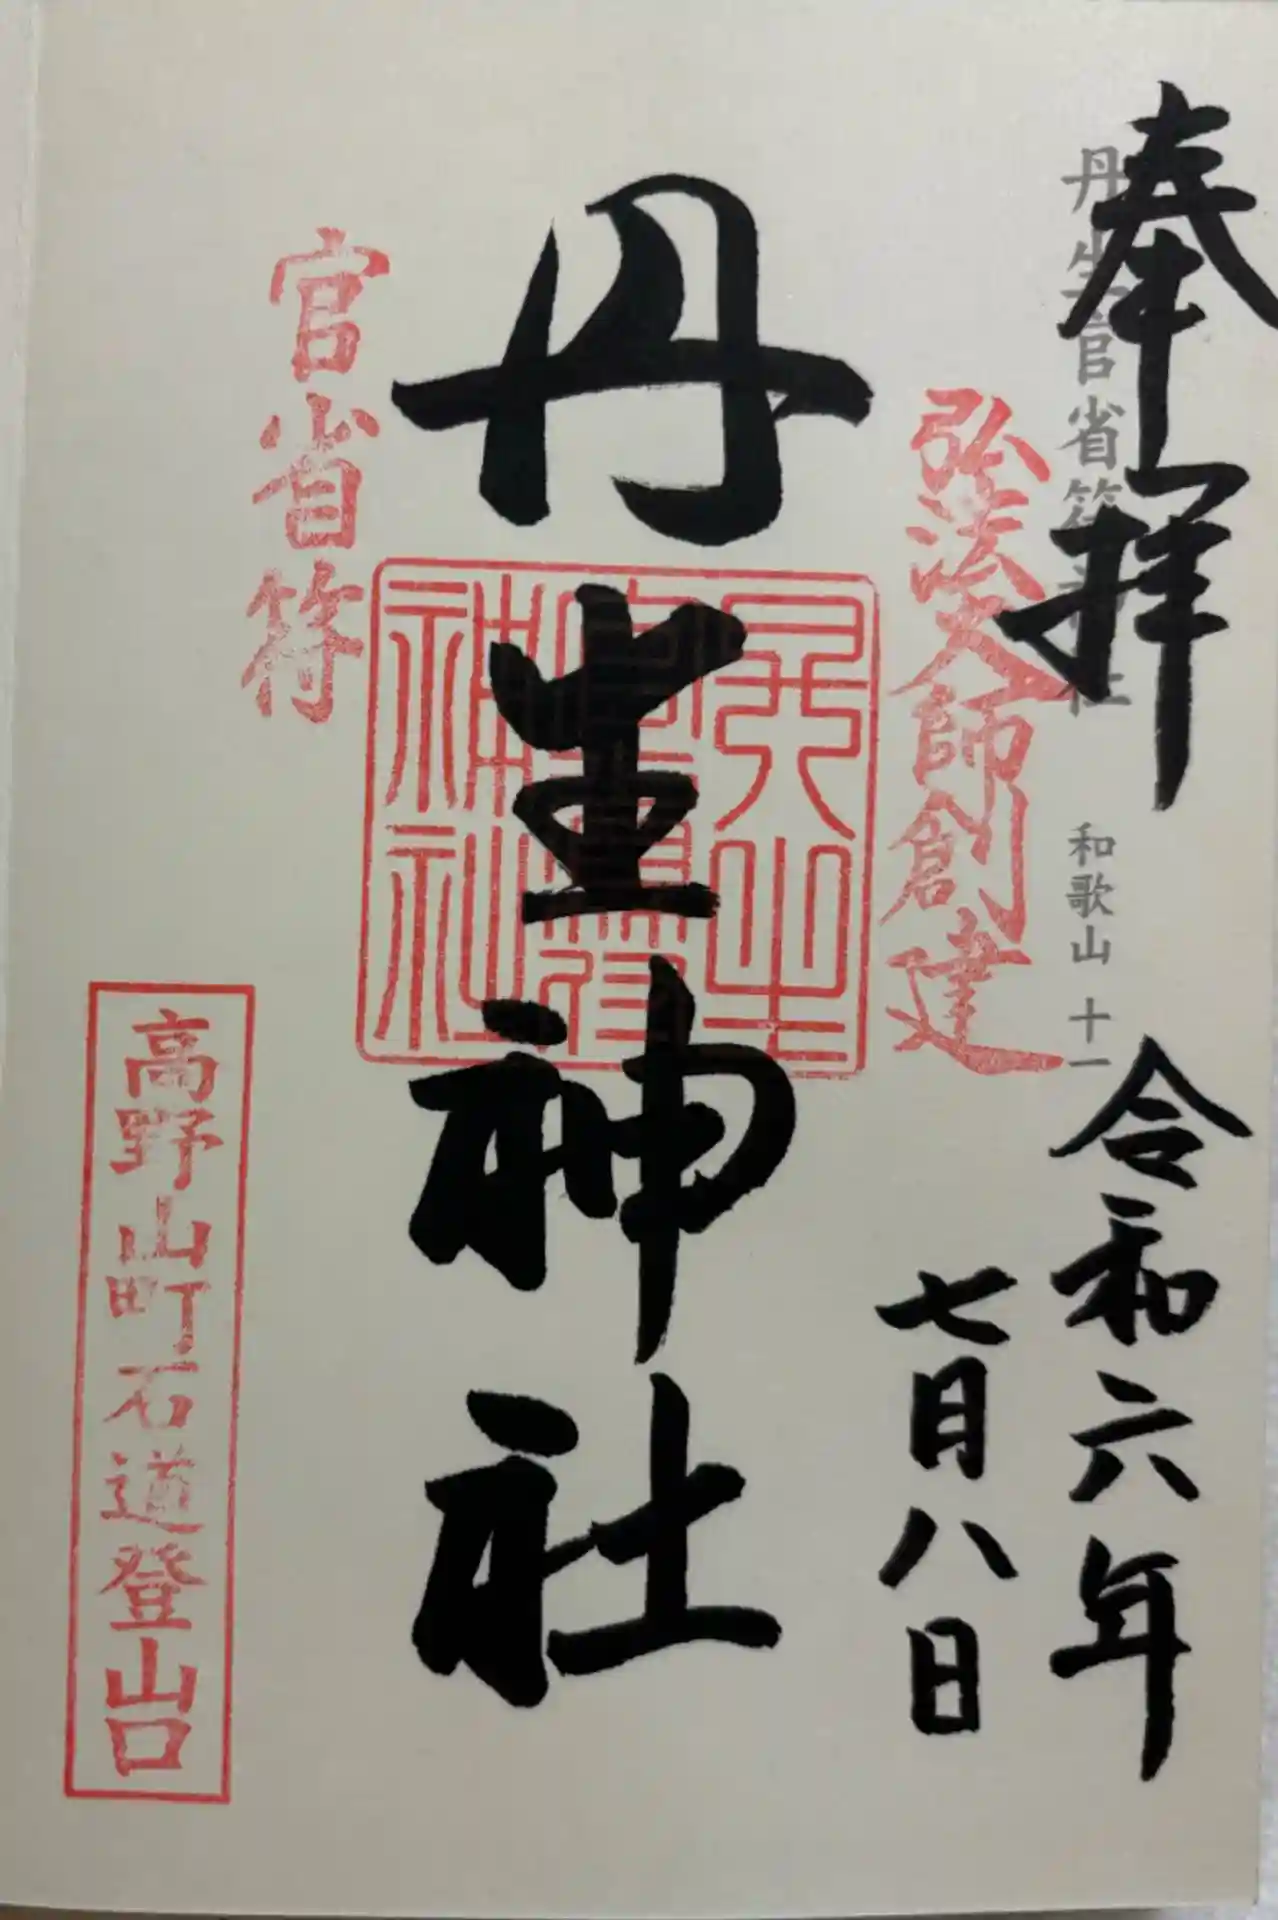 奉拝
丹生官省符神社
和歌山 十一
令和六年
七月八日
弘法大師創建
丹生神社
丹生官省符神社
官省符
高野山町石道登山口